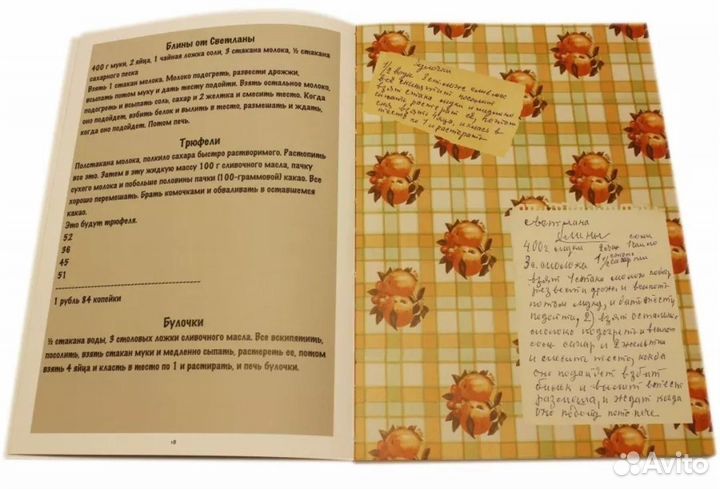 Блины от Светланы
400 г муки, 2 яйца, 1 чайная ложка соли, 3 стакана молока, ½ стакана
сахарного песка
Взять 1 стакан молока. Молоко подогреть, развести дрожжи,
всыпать потом муку и дать тесту подойти. Взять остальное молоко,
подогреть и всыпать соль, сахар и 2 желтка и смесить тесто. Когда
оно подойдет, взбить белок и вылить в тесто, размешать и ждать,
когда оно подойдет. Потом печь.
Трюфели
Полстакана молока, полкило сахара быстро растворимого. Растопить
все это. Затем в эту жидкую массу 100 г сливочного масла, пачку
сухого молока и побольше половины пачки (100-граммовой) какао. Все
хорошо перемешать. Брать комочками и обваливать в оставшемся
какао.
Это будут трюфеля.
52
36
45
51
1 рубль 84 копейки
Булочки
½ стакана воды, 3 столовых ложки сливочного масла. Все вскипятить,
посолить, взять стакан муки и медленно сыпать, растереть ее, потом
взять 4 яйца и класть в тесто по 1 и растирать, и печь булочки.
18
Булочки
½ воды 3 ст ложке
всё посолит
взят стака муки и
растереть её, потом
взят яйца
тесто по 1 и растират
светлана
Блины
400г муки
3 с молока
взят 1 стака молок
развести дрож и всыпат
потом муку, и дат тесту
подойти, 2) взят остально
молоко подогреть и всыпат
соль сахар и 2 желтка
и смесит тесто, когда
оно подайдёт взбит
белок и вылит в тесто
размеша, и ждат когда
оно потом пече
Avito